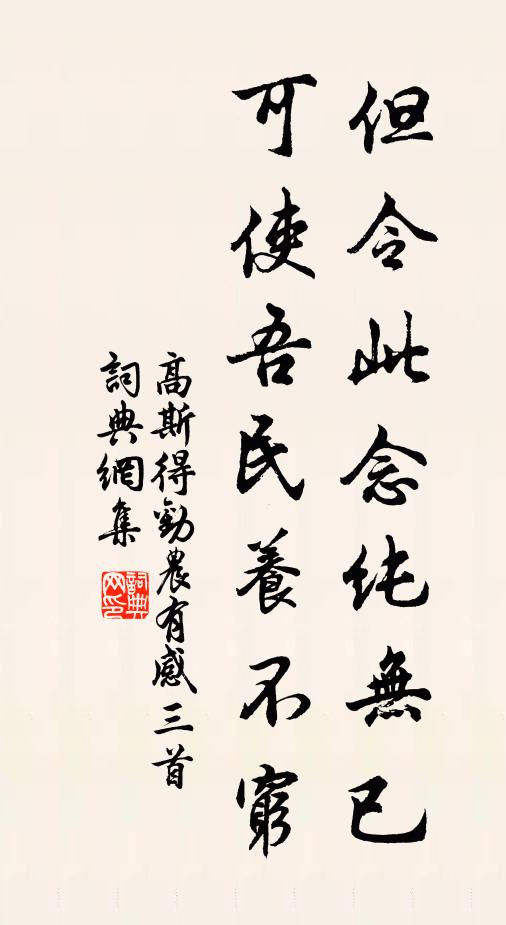 但令此念純無已
可使吾民養不窮
高斯得勸農有感三首
詞典網集
詞典網印